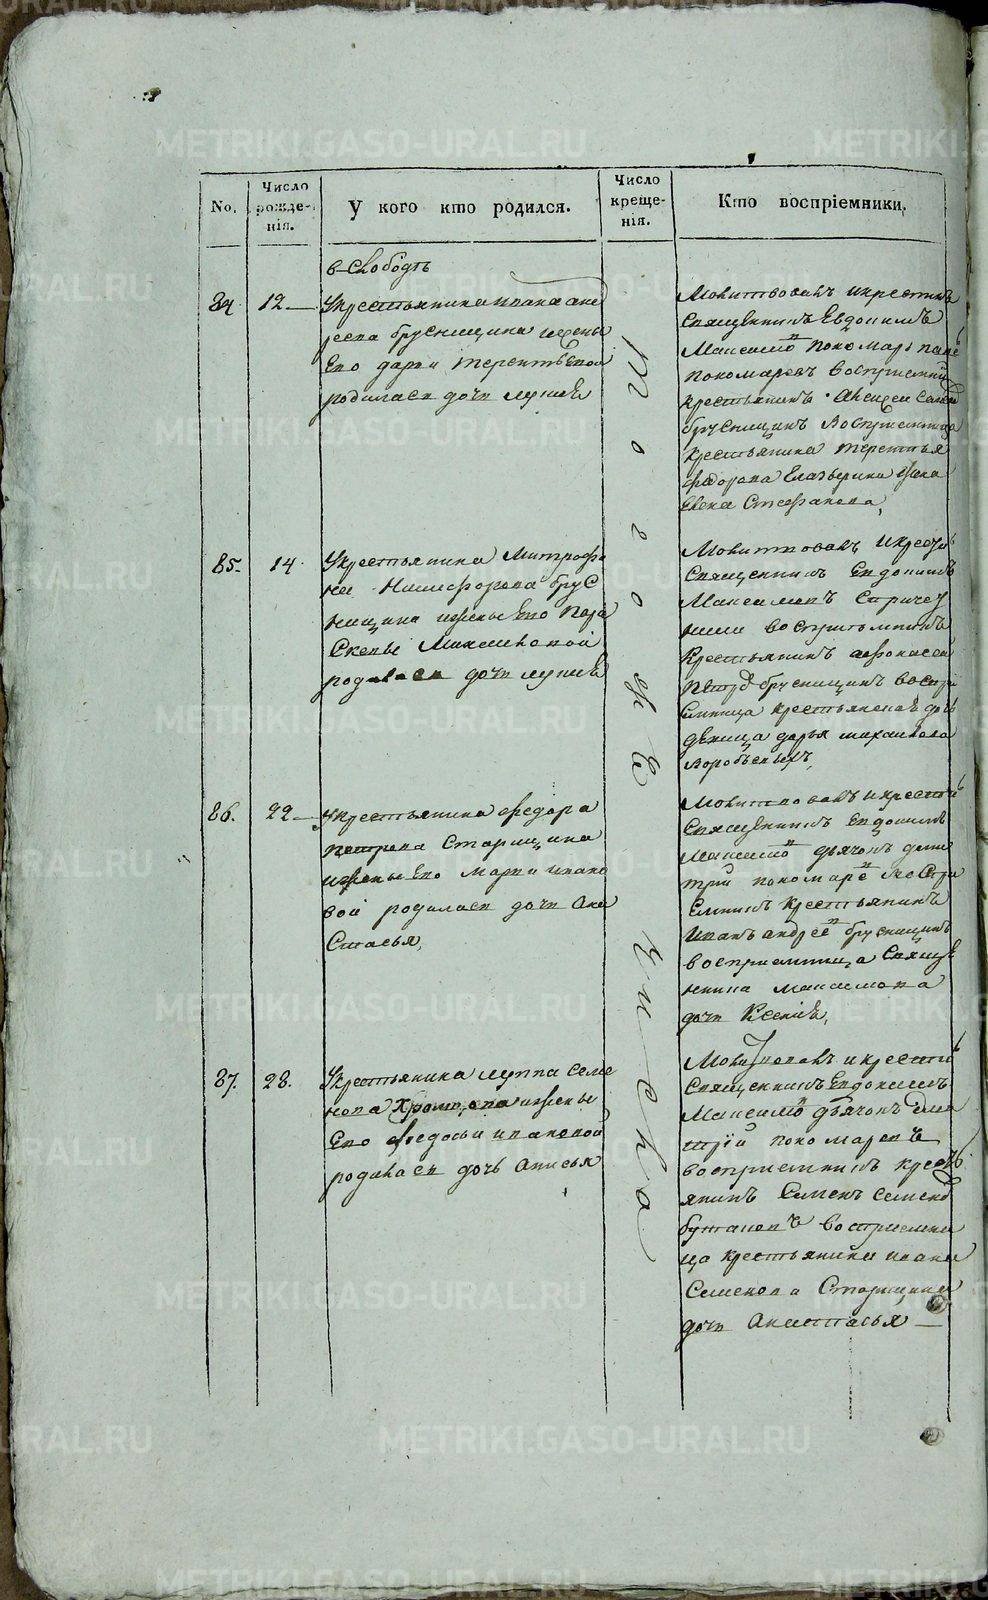 METRIKI.GASO-URAL.RU
No.
Число рожде-нія.
У кого кто родился.
Число креще-нія.
Кто воспріемники.
в Слободѣ
84
12
Укрестьянина ивана анд
реева брусницина ижены
Его дарьи терентьевой
родилась дочь
Молитвовалъ икрестилъ
Священникъ Евдокимъ
Максимо пономарь
пономаревъ восприемникъ
крестьянинъ Алексей
брусницинъ восприемница
крестьянина терентья
федорова жена
Елена Стефанова,
тогожъ Числа
85.
14
Укрестьянина Митрофа
на Никифорова брус
ницина ижены Его Пара
Скевы Максимовой
родилась дочь
Молитвовалъ икрестил
Священникъ Евдокимъ
Максимовъ Спричет
ники восприемникъ
крестьянинъ афонасей
Петров брусницинъ воспри
Емница крестьянская дочь
девица дарья михайлова
Воробьевыхъ,
86.
22
укрестьянина федора
петрова Старицина
ижены Его Марьи ивано
вой родилась дочь Ана
Стасья,
Молитвовалъ икрестил
Священникъ Евдокимъ
Максимо дьячокъ дими
трий пономаре воспри
Емникъ крестьянинъ
Иванъ андрее брусницинъ
восприемница Свяще
нника максимова
дочь Ксения,
87.
28.
Укрестьянина луппа Семе
нова Хромцова ижены
Его федосьи ивановой
родилась дочь анисья
Молитвовалъ икрестил
Священникъ Евдокимъ
Максимо дьячокъ дими
трій пономаревъ
восприемникъ кресть
янинъ Семенъ Семено
бутаковъ восприемни
ца крестьянина ивана
Семенова Старицина
дочь Анастасья